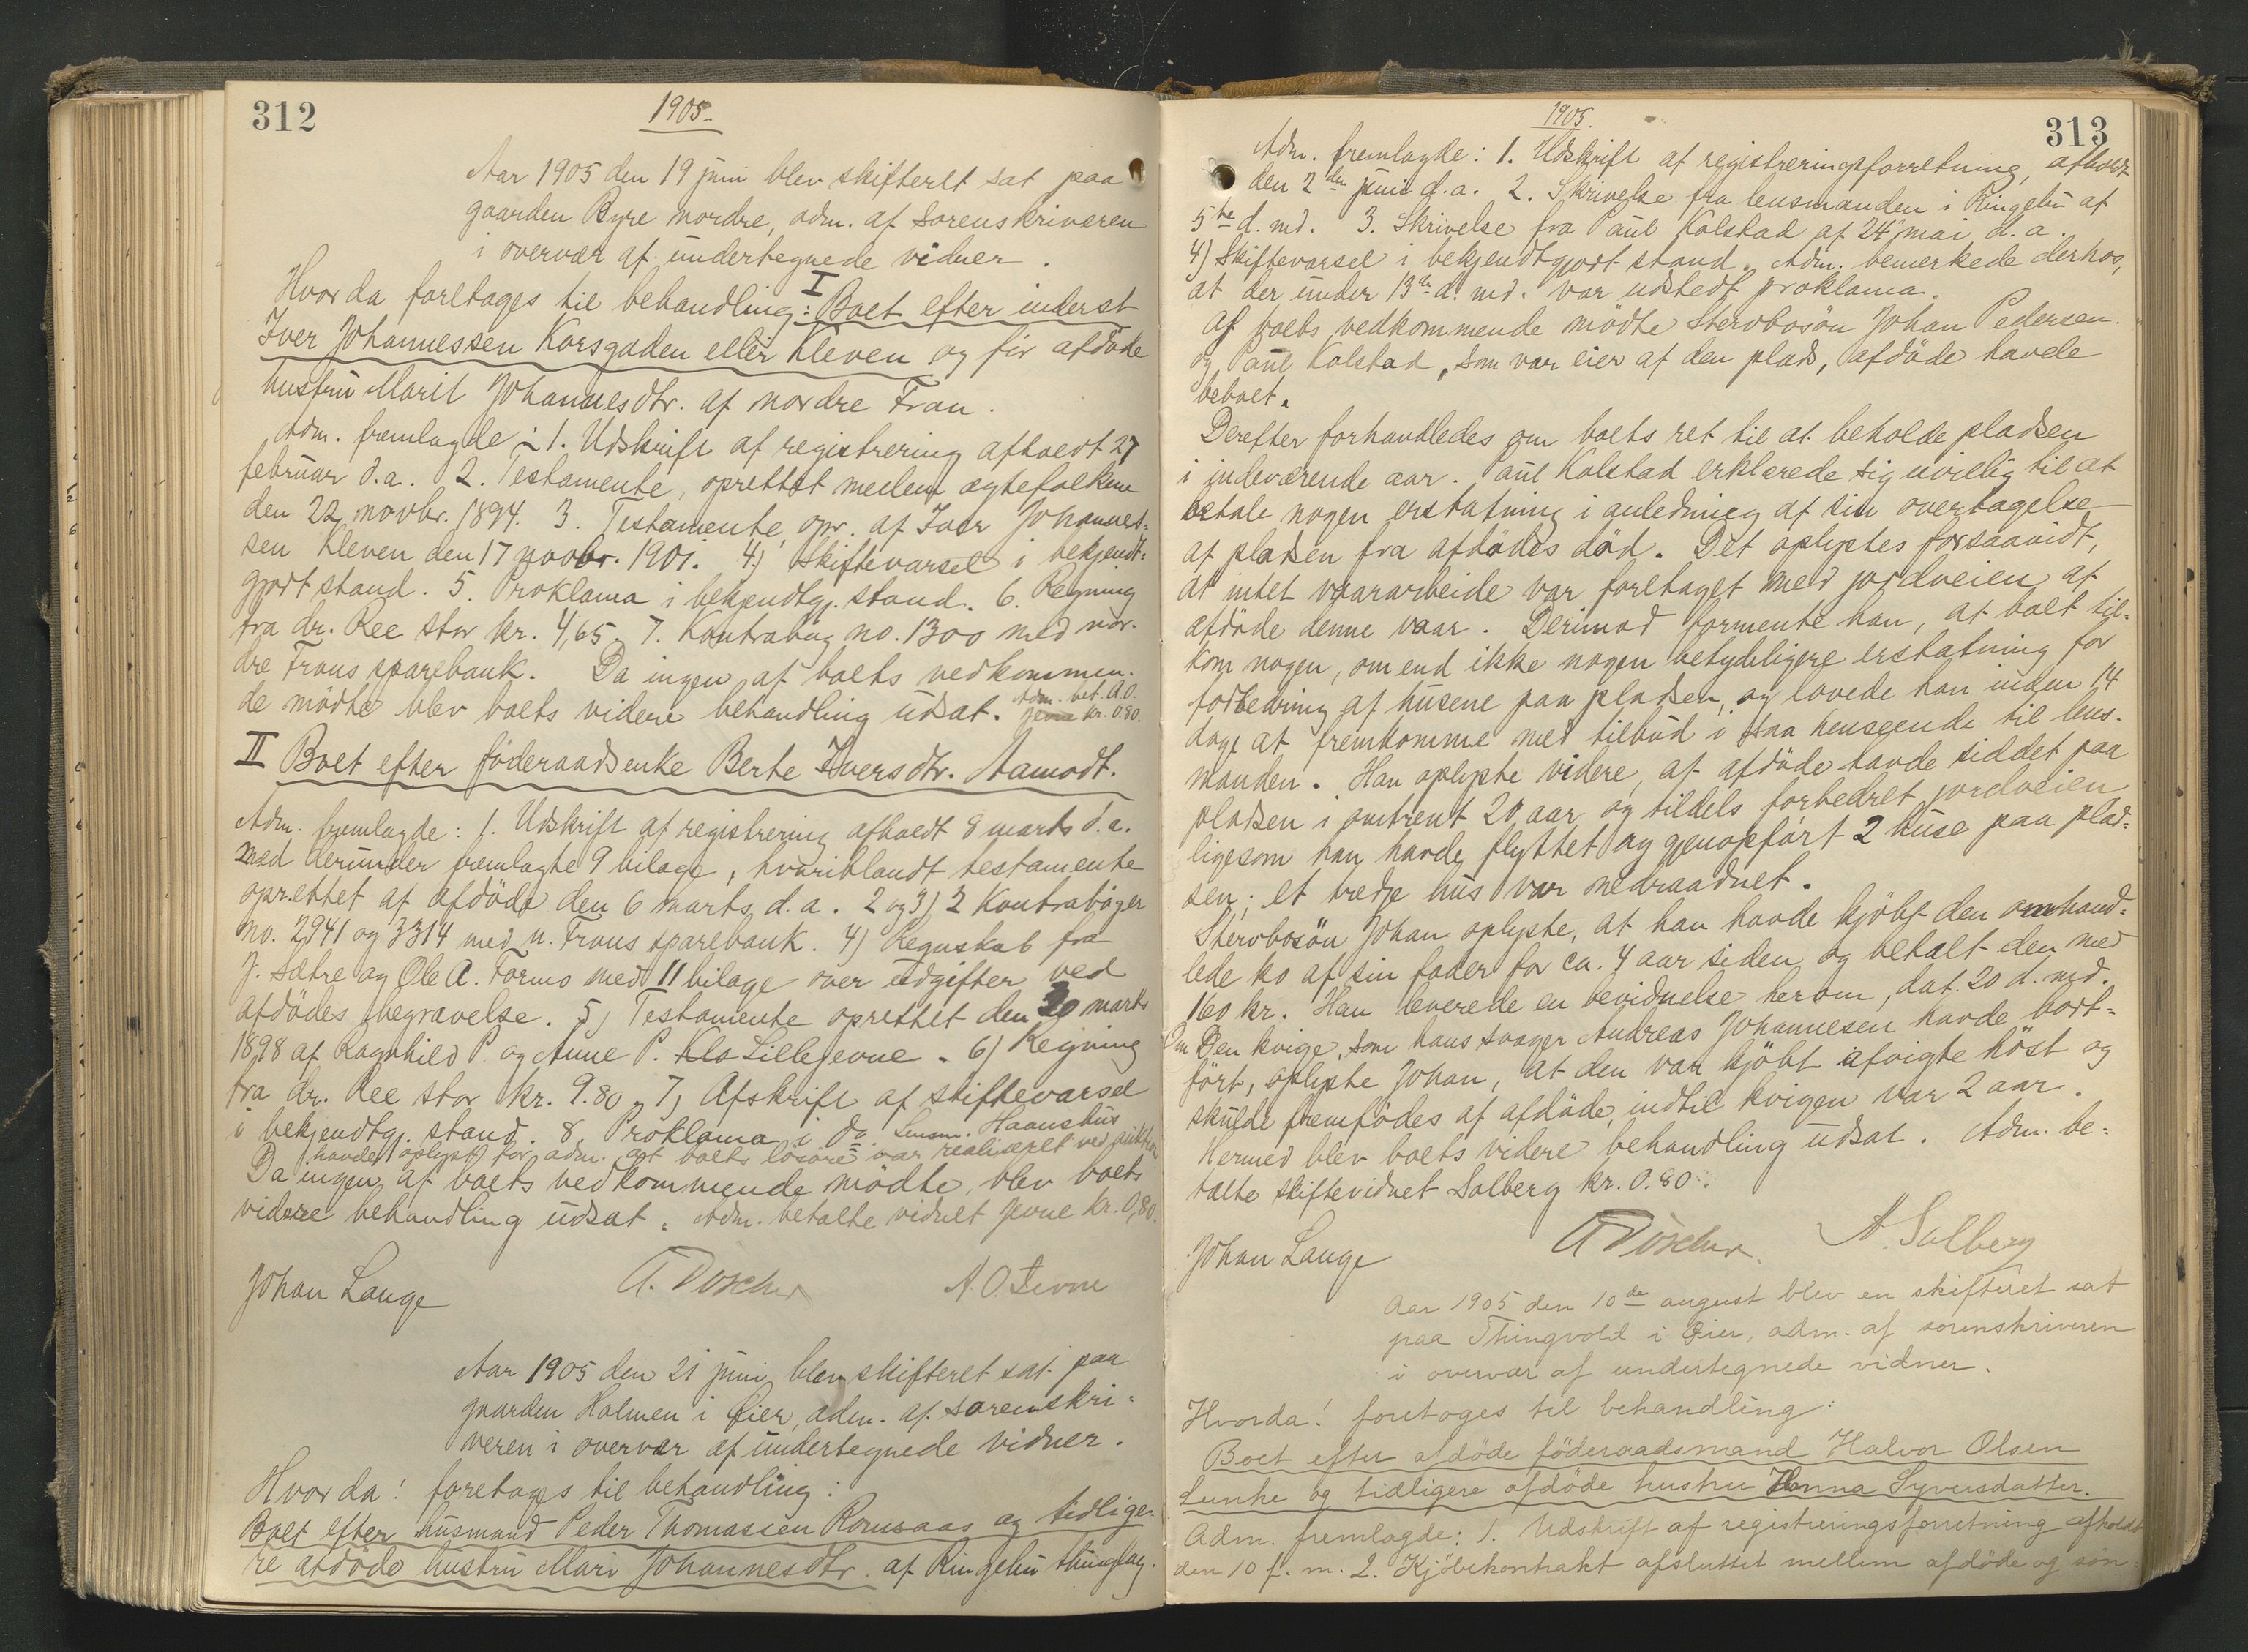 312
1905.
Aar 1905 den 19 juni blev skifteret sat paa
gaarden Byre nordre, adm. af sorenskriveren
i overvær af undertegnede vidner.
Hvorda foretages til behandling: I Boet efter inderst
Iver Johannessen Korsgaden eller Kleven og før afdøde
hustru Marit Johannesdtr. af nordre Fron.
Adm. fremlagde: 1. Udskrift af registrering afholdt 27
februar d.a. 2. Testamente, oprettet mellem ægtefolkene
den 22 novbr. 1894. 3. Testamente opr. af Iver Johannes-
sen Kleven den 17 novbr. 1901. 4) Skiftevarsel i bekjendt-
gjort stand. 5. Proklama i bekjendtgj. stand. 6. Regning
fra dr. Ree stor kr. 4,65. 7. Kontrabog no. 1300 med nor-
dre Frons sparebank. Da ingen af boets vedkommen-
de mødte blev boets videre behandling udsat. Adm. bet. A.O.
Jevne kr. 0.80.
II Boet efter føderaadsenke Berte Iversdtr. Aamodt.
Adm. fremlagde: 1. Udskrift af registrering afholdt 8 marts d.a.
med derunder fremlagte 9 bilage, hvoriblandt testamente
oprettet af afdøde den 6 marts d.a. 2 og 3) 2 Kontrabøger
no. 2941 og 3314 med n. Frons sparebank. 4) Regnskab fra
J. Sætre og Ole A. Formo med 11 bilage over udgifter ved
afdødes begravelse. 5) Testamente oprettet den 30 marts
1898 af Ragnhild P. og Anne P. Kla Lillejevne. 6) Regning
fra dr. Ree stor kr. 9.80. 7) Afskrift af skiftevarsel
i bekjendtgj. stand. 8. Proklama i do. Lensm. Haanshus
havde oplyst for adm. at boets løsøre var realiseret ved auktion
Da ingen af boets vedkommende mødte, blev boets
videre behandling udsat. Adm. betalte vidnet Jevne kr. 0,80.
Johan Lange A. Döscher A.O. Jevne
Aar 1905 den 21 juni blev skifteret sat paa
gaarden Holmen i Øier, adm. af sorenskri-
veren i overvær af undertegnede vidner.
Hvorda! foretages til behandling:
Boet efter husmand Peder Thomassen Romsaas og tidlige-
re afdøde hustru Mari Johannesdtr. af Ringebu thinglag.
313
1905.
Adm. fremlagde: 1. Udskrift af registreringsforretning, afholdt
den 2den juni d.a. 2. Skrivelse fra lensmanden i Ringebu af
5te d. md. 3. Skrivelse fra Paul Kolstad af 24 mai d.a.
4) Skiftevarsel i bekjendtgjort stand. Adm. bemerkede derhos,
at der under 13de d. md. var udstedt proklama.
Af boets vedkommende mødte stervbosøn Johan Pedersen
og Paul Kolstad, som var eier af den plads, afdøde havde
beboet.
Derefter forhandledes om boets ret til at beholde pladsen
i indeværende aar. Paul Kolstad erklærede sig uvillig til at
betale nogen erstatning i anledning af sin overtagelse
af pladsen fra afdødes død. Det oplystes forsaavidt,
at intet vaararbeide var foretaget med jordveien af
afdøde denne vaar. Derimod formente han, at boet til-
kom nogen, om end ikke nogen betydeligere erstatning for
forbedring af husene paa pladsen, og lovede han inden 14
dage at fremkomme med tilbud i saa henseende til lens-
manden. Han oplyste videre, at afdøde havde siddet paa
pladsen i omtrent 20 aar og tildels forbedret jordveien
ligesom han havde flyttet og gjenopført 2 huse paa plad-
sen; et tredje hus var nedraadnet.
Stervbosøn Johan oplyste, at han havde kjøbt den omhand-
lede ko af sin fader for ca. 4 aar siden og betalt den med
160 kr. Han leverede en bevidnelse herom, dat. 20 d. md.
Om Den kvige, som hans svoger Andreas Johannesen havde bort-
ført, oplyste Johan, at den var kjøbt afvigte høst og
skulde fremfødes af afdøde, indtil kvigen var 2 aar.
Hermed blev boets videre behandling udsat. Adm. be-
talte skiftevidnet Solberg kr. 0.80.
Johan Lange A Döscher A. Solberg
Aar 1905 den 10de august blev en skifteret sat
paa Thingvold i Øier, adm. af sorenskriveren
i overvær af undertegnede vidner.
Hvorda! foretoges til behandling:
Boet efter afdøde føderaadsmand Halvor Olsen
Lunke og tidligere afdøde hustru Hanna Syversdatter.
Adm. fremlagde: 1. Udskrift af registreringsforretning afholdt
den 10 f. m. 2. Kjøbekontrakt afsluttet mellem afdøde og søn-